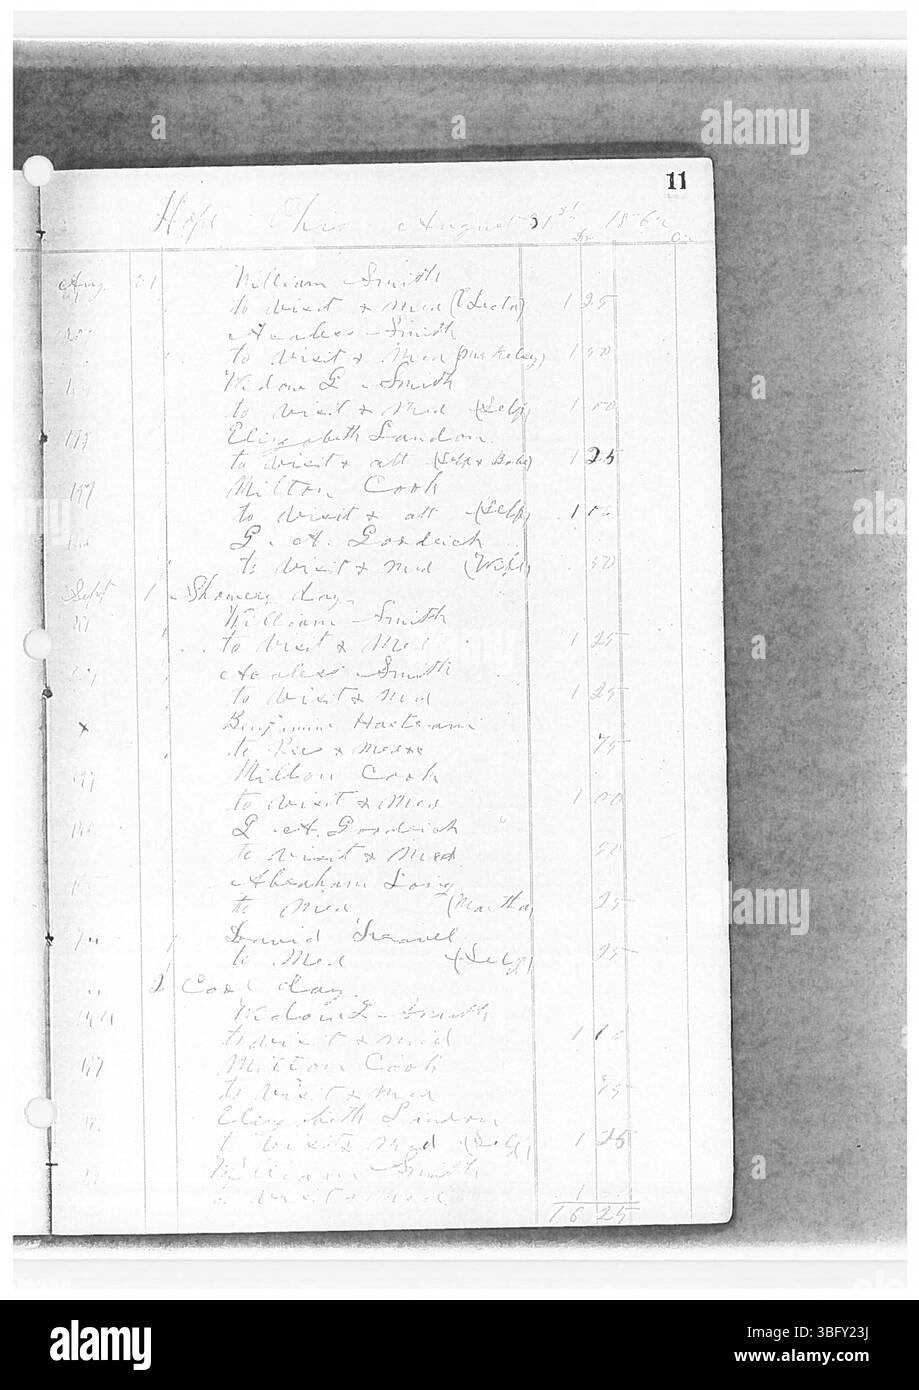 11
Hope Ohio August 31st 186
Dr Cr
Aug 31 William Smith
to visit & Med 1 25
Smith
to visit & Med 1 50
Widow E Smith
to visit & Med (Self) 1 00
197 Elizabeth Landon
to visit & att (Self & Babe) 1 25
197 Milton Cook
to visit & att (Self) 1 00
G. A. Goodrich
to visit & Med (Wife) 50
Sept 1 Showery day
William Smith
to visit & Med 1 25
Smith
to visit & Med 1 25
x Benjamin
to & 75
197 Milton Cook
to visit & Med 1 00
G. A. Goodrich
to visit & Med 50
Abraham Long
to Med (Martha) 25
David
to Med (Self) 25
2 Cool day
Widow E Smith
to visit & Med 1
197 Milton Cook
to visit & Med 75
Elizabeth Landon
to visit & Med (Self) 1 25
William Smith
to visit & Med 1
16 25
alamy
a
alamy
Image ID: 3BFY23J
www.alamy.com